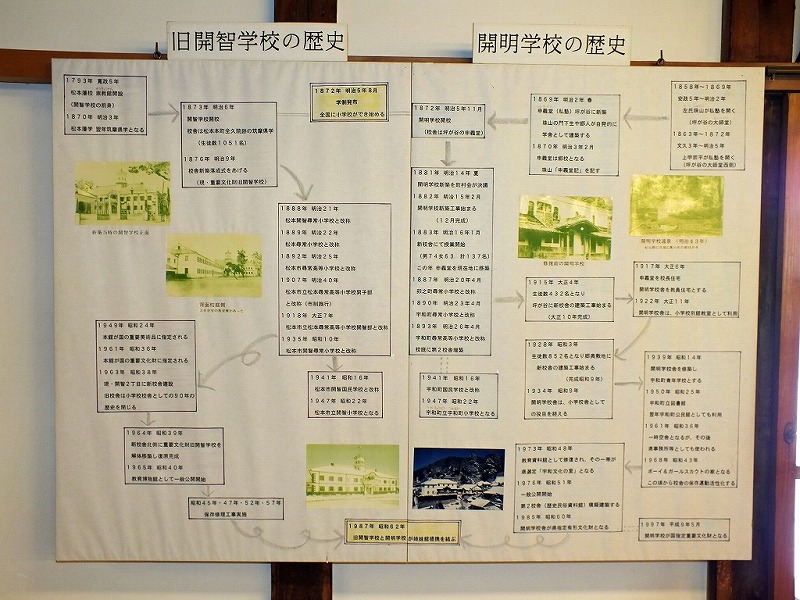 旧開智学校の歴史
開明学校の歴史
1793年 寛政5年
松本藩校 崇教館開設
(開智学校の前身)
1870年 明治3年
松本藩学 翌年筑摩県学となる
1873年 明治6年
開智学校開校
(校舎は松本本町全久院跡の筑摩県学)
(生徒数1051名)
1876年 明治9年
校舎新築落成式をあげる
(現・重要文化財旧開智学校)
新築当時の開智学校正面
1888年 明治21年
松本開智尋常小学校と改称
1889年 明治22年
松本尋常小学校と改称
1892年 明治25年
松本市尋常高等小学校と改称
1907年 明治40年
松本市立松本尋常高等小学校男子部
と改称(市制施行)
1918年 大正7年
松本市立松本尋常高等小学校開智部と改称
1935年 昭和10年
松本市開智尋常小学校と改称
1949年 昭和24年
本館が国の重要美術品に指定される
1961年 昭和36年
本館が国の重要文化財に指定される
1963年 昭和38年
現・開智2丁目に新校舎建設
旧校舎は小学校校舎としての90年の
歴史を閉じる
1941年 昭和16年
松本市開智国民学校と改称
1947年 昭和22年
松本市立開智小学校となる
1964年 昭和39年
新校舎北側に重要文化財旧開智学校を
解体移築し復原完成
1965年 昭和40年
教育博物館として一般公開開始
昭和45年・47年・52年・57年
保存修理工事実施
1872年 明治5年8月
学制発布
全国に小学校ができ始める
1872年 明治5年11月
開明学校開校
(校舎は坪が谷の申義堂)
1869年 明治2年 春
申義堂(私塾)坪が谷に新築
珠山の門下生や郷人が自発的に
学舎として建築する
1870年 明治3年2月
申義堂は郷校となる
珠山「申義堂記」を記す
1858年~1869年
安政5年~明治2年
左氏珠山が私塾を開く
(坪が谷の大師堂)
1863年~1872年
文久3年~明治5年
上甲振洋が私塾を開く
(坪が谷の大師堂西側)
1881年 明治14年 夏
開明学校新築を町村会が決議
1882年 明治15年2月
開明学校新築工事始まる
(12月完成)
1883年 明治16年1月
新校舎にて授業開始
(男74女63 計137名)
この年 申義堂を現在地に移築
1887年 明治20年4月
卯之町尋常小学校と改称
1890年 明治23年4月
宇和町尋常小学校と改称
1893年 明治26年4月
校庭に第2校舎増築
修復前の開明学校
開明学校遠景(明治43年)
1915年 大正4年
生徒数432名となり
坪が谷に新校舎の建築工事始まる
(大正10年完成)
1917年 大正6年
申義堂を校長住宅
開明学校を教員住宅とする
1922年 大正11年
開明学校舎は、小学校別館教室として利用
1928年 昭和3年
生徒数852名となり郷奥敷地に
新校舎の建築工事始まる
(完成昭和9年)
1934年 昭和9年
開明学校舎は、小学校舎として
の役目を終える
1939年 昭和14年
開明学校舎を修築し
宇和町青年学校とする
1950年 昭和25年
宇和町立図書館
翌年宇和町公民館としても利用
1961年 昭和36年
一時空舎となるが、その後
進事務所等としても使われる
1968年 昭和43年
ボーイ&ガールスカウトの家となる
この頃から校舎の保存運動活性化する
1941年 昭和16年
宇和町国民学校と改称
1947年 昭和22年
宇和町立宇和町小学校となる
1973年 昭和48年
教育資料館として修復され、その一帯が
県選定「宇和文化の里」となる
1976年 昭和51年
一般公開開始
第2校舎(歴史民俗資料館)模擬建築する
1985年 昭和60年
開明学校舎が県指定有形文化財となる
1997年 平成9年5月
開明学校が国指定重要文化財となる
1987年 昭和62年
旧開智学校と開明学校が姉妹館提携を結ぶ